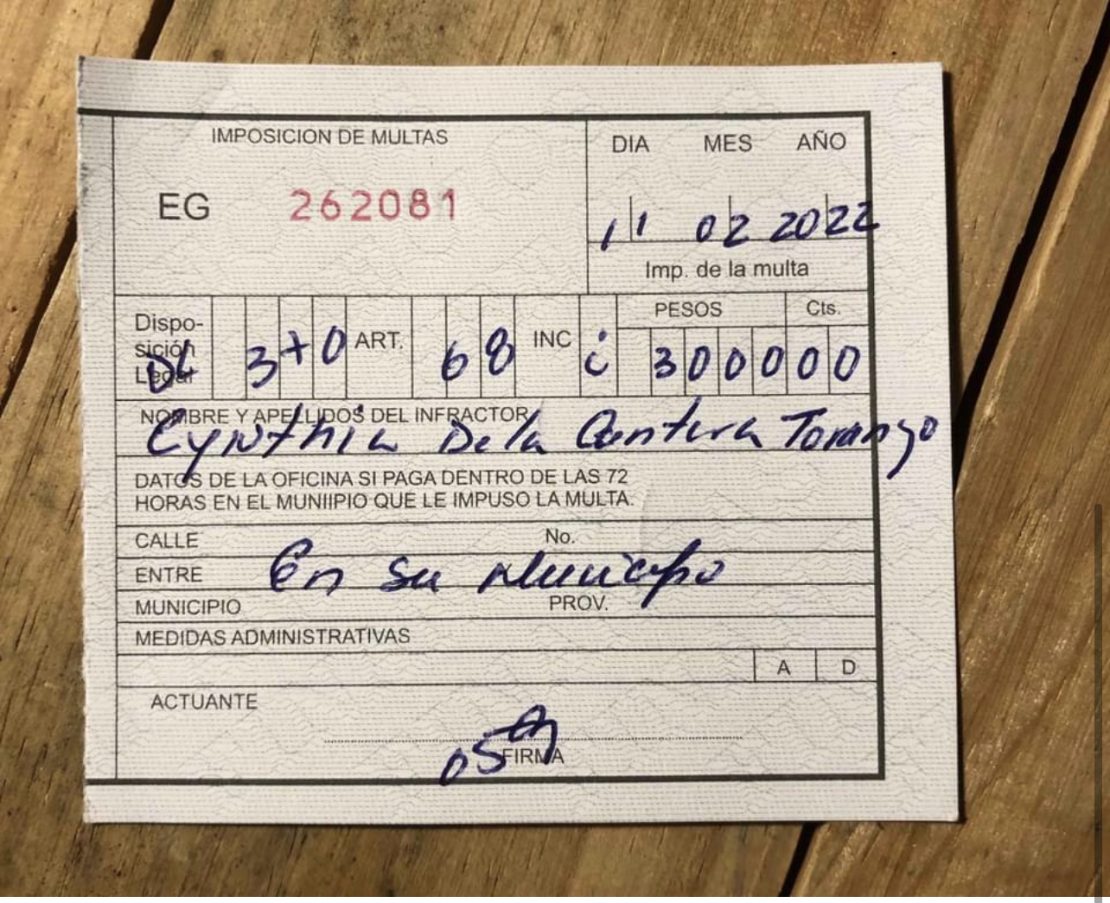 IMPOSICION DE MULTAS
DIA MES AÑO
EG 262081
11 02 2022
Imp. de la multa
Disposición Legal DL 370 ART. 68 INC i PESOS 3000 Cts. 00
NOMBRE Y APELLIDOS DEL INFRACTOR
Cynthia De la Cantera Toranzo
DATOS DE LA OFICINA SI PAGA DENTRO DE LAS 72
HORAS EN EL MUNIIPIO QUE LE IMPUSO LA MULTA.
CALLE No.
ENTRE En su Municipio
MUNICIPIO PROV.
MEDIDAS ADMINISTRATIVAS
A D
ACTUANTE
FIRMA